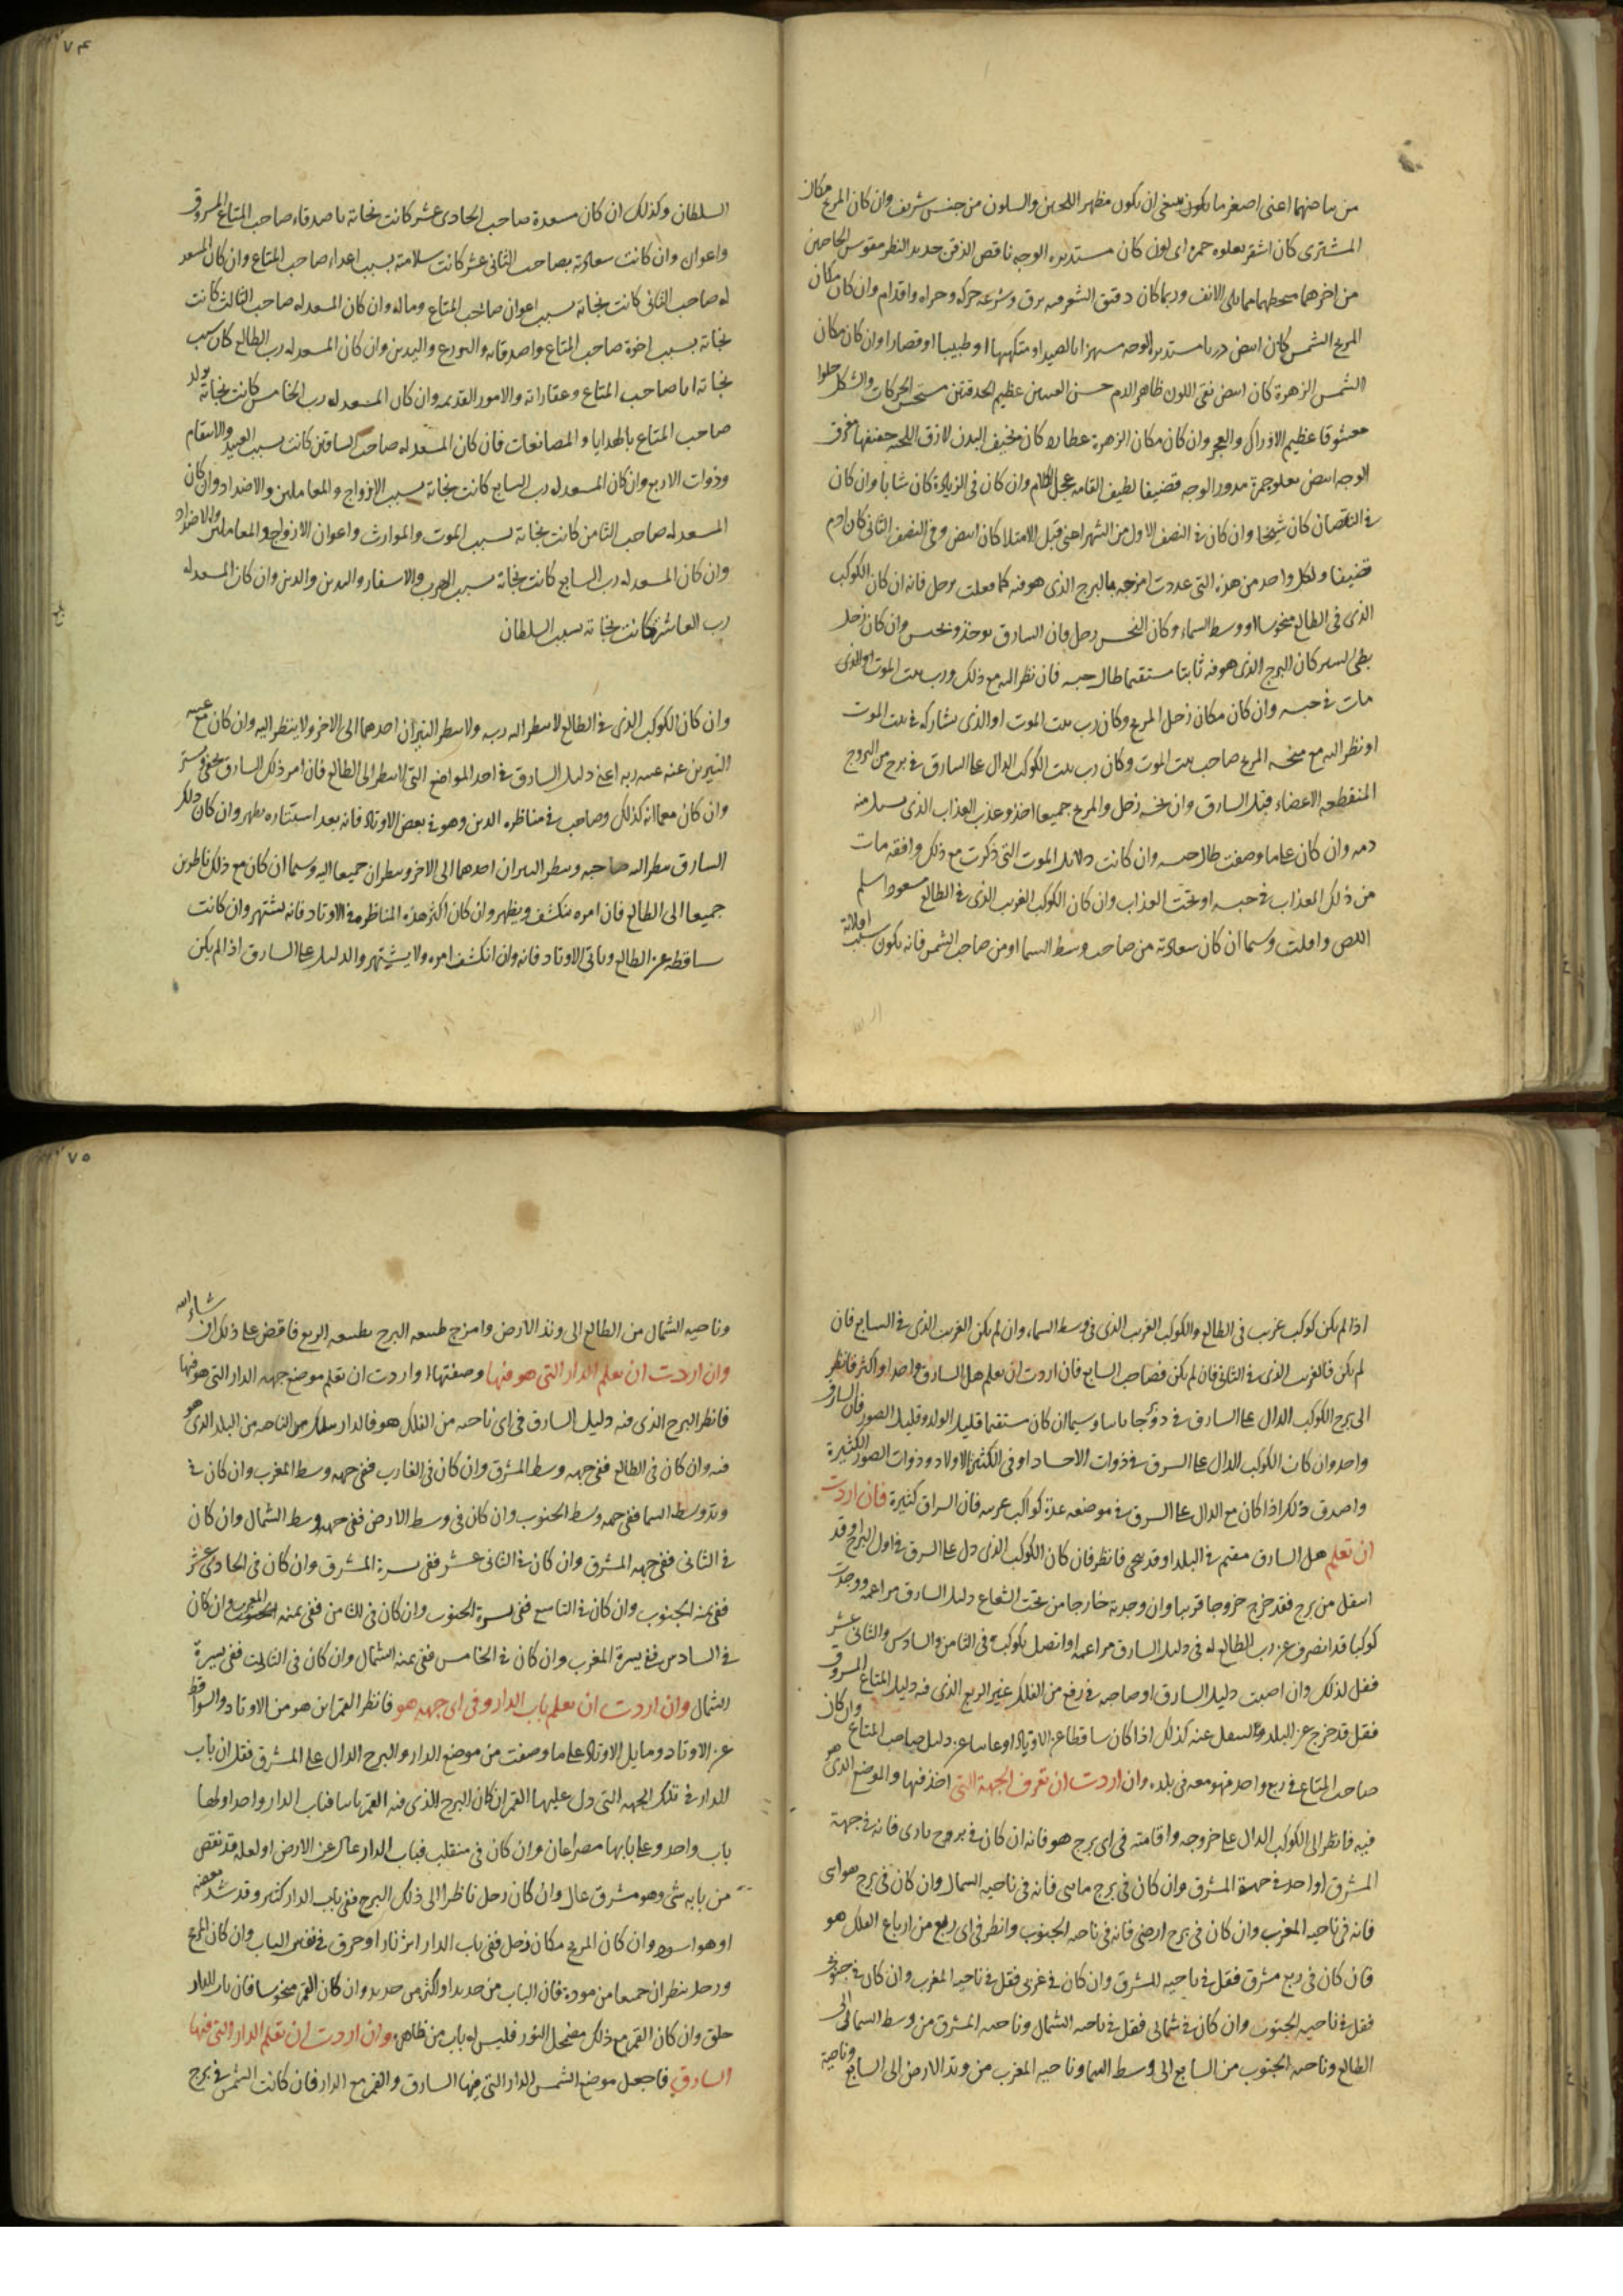 من بياضهما اعنى اصغر ما يكون ينبغى ان يكون مظهر اللحيين والسلون من جنس شريف وان كان المريخ مكان
المشترى كان اشقر يعلوه حمره اى لون كان مستديره الوجه ناقص الذقن حديد النظر مقوس الحاجبين
من اخرهما مما يلى الانف وربما كان دقيق الشعر فيه برق وسرعه حركه وجراه واقدام وان كان مكان
المريخ الشمس كان ابيض دريا مستديره الوجه بالصيد او متكهنا او طبيبا او قصارا وان كان مكان
الشمس الزهرة كان ابيض نقى اللون ظاهر الدم حسن العينين عظيم الحدقتين مستحسن الحركات والشكل حلوا
معشوقا عظيم الاوراك والعجز وان كان مكان الزهرة عطارد كان نحيف البدن لازق اللحيه خفيفها مغرق
الوجه ابيض يعلوه حمرة مدور الوجه قضيفا لطيف القامه عجل الكلام وان كان فى الزيادة كان شابا وان كان
فى النقصان كان شيخا وان كان فى النصف الاول من الشهر اعنى قبل الامتلا كان ابيض وفى النصف الثانى كان ادم
قضيفا ولكل واحد من هذه التى عددت امزجه بالبرج الذى هو فيه كما فعلت بزحل فانه ان كان الكوكب
الذى فى الطالع منحوسا او وسط السماء وكان النحس زحل فان السارق يوخذ ويحبس وان كان زحل
بطى السير كان البرج الذى هو فيه ثابتا مستقيما طال حبسه فان نظر اليه مع ذلك ورب بيت الموت او الذى
مات فى حبسه وان كان مكان زحل المريخ وكان رب بيت الموت او الذى يشاركه فى بيت الموت
او نظر اليه مع نحسه المريخ صاحب بيت الموت وكان رب بيت الكوكب الدال على السارق فى برج من البروج
المنقطعه الاعضاء قتل السارق وان نحسه زحل والمريخ جميعا اخذ وعذب العذاب الذى يسيل منه
دمه وان كان على ما وصفت طال حبسه وان كانت دلائل الموت التى ذكرت مع ذلك وافقه مات
من ذلك العذاب فى حبسه او تحت العذاب وان كان الكوكب الغريب الذى فى الطالع مسعودا سلم
اللص وافلت وسيما ان كان سعادته من صاحب وسط السما او من صاحب الشمس فانه يكون سبب افلاته
٧٤
السلطان وكذلك ان كان مسعدة صاحب الحادى عشر كانت نجاته باصدقاء صاحب المتاع المسروق
واعوان وان كانت سعادته بصاحب الثانى عشر كانت سلامته بسبب اعداء صاحب المتاع وان كان المسعد
له صاحب الثانى كانت نجاته بسبب اعوان صاحب المتاع وماله وان كان المسعد له صاحب الثالث كانت
نجاته بسبب اخوة صاحب المتاع واصدقائه والورع والدين وان كان المسعد له رب الطالع كان سبب
نجاته ابا صاحب المتاع وعقاراته والامور القديمه وان كان المسعد له رب الخامس كانت نجاته بولد
صاحب المتاع بالهدايا والمصانعات فان كان المسعد له صاحب السادس كانت بسبب العبيد والاسقام
وذوات الاربع وان كان المسعد له رب السابع كانت نجاته بسبب الازواج والمعاملين والاضداد وان كان
المسعد له صاحب الثامن كانت نجاته بسبب الموت والموارث واعوان الازواج والمعاملين والاضداد
وان كان المسعد له رب السابع كانت نجاته بسبب الهرب والاسفار والبدن والدين وان كان المسعد له
رب العاشر كانت نجاته بسبب السلطان
وان كان الكوكب الذى فى الطالع لا ينظر اليه ربه ولا ينظر النيران احدهما الى الاخر ولا ينظر اليه وان كان مع غيبه
النيرين عنه غيبه ربه اعنى دليل السارق فى احد المواضع التى لا ينظر الى الطالع فان امر ذلك السارق يخفى ويستر
وان كان مع ما انه كذلك وصاحبه فى مناظره الدين وهو فى بعض الاوتاد فانه بعد استتاره يظهر وان كان ذلك
السارق ينظر اليه صاحبه وينظر النيران احدهما الى الاخر وينظران جميعا اليه وسيما ان كان مع ذلك ناظرين
جميعا الى الطالع فان امره ينكشف ويظهر وان كان اكثر هذه المناظره فى الاوتاد فانه يشتهر وان كانت
ساقطه عن الطالع وباقى الاوتاد فانه وان انكشف امره ولا يشتهر والدليل على السارق اذا لم يكن
اذا لم يكن كوكب غريب فى الطالع والكوكب الغريب الذى فى وسط السما، وان لم يكن الغريب الذى فى السابع فان
لم يكن فالغريب الذى فى الثانى فان لم يكن فصاحب السابع فان اردت ان تعلم هل السارق واحد او اكثر فانظر
الى برج الكوكب الدال على السارق فى ثابتا وسيما ان كان مستقيما قليل الولد وقليل الصور فان السارق
واحد وان كان الكوكب الدال على السرق فى ذوات الاجساد او فى الكثيرة الاولاد وذوات الصور الكثيرة
واصدق ذلك اذا كان مع الدال على السرق فى موضعه عدة كواكب غريبه فان السراق كثيرة فان اردت
ان تعلم هل السارق مقيم فى البلد او قد نحى فانظر فان كان الكوكب الذى دل على السرق فى اول البرج او قد
اسفل من برج فقد خرج خروجا قريبا وان وجدته خارجا من تحت الشعاع دليل السارق مراغمه ووجدت
كوكبا قد انصرف عن رب الطالع له فى دليل السارق مراغمه او اتصل بكوكب فى الثامن والسادس والثانى عشر
فقل لذلك وان اصبت دليل السارق او صاحبه فى ربع من الفلك غير الربع الذى فيه دليل المتاع المسروق
فقل قد خرج عن البلد وانتقل عنه كذلك اذا كان ساقطا عن الاوتاد او غائبا عن دليل صاحب المتاع وان كان
صاحب المتاع فى ربع واحد فهو معه فى بلده وان اردت ان تعرف الجهة التى اخذ فيها والموضع الذى هو
فيه فانظر الى الكوكب الدال على خروجه واقامته فى اى برج هو فانه ان كان فى بروج نارى فانه فى جهة
المشرق او احد فى جهة المشرق وان كان فى برج مائى فانه فى ناحيه الشمال وان كان فى برج هوائى
فانه فى ناحيه المغرب وان كان فى برج ارضى فانه فى ناحيه الجنوب وانظر فى اى ربع من ارباع الفلك هو
فان كان فى ربع مشرق فقل فى ناحيه المشرق وان كان فى غربى فقل فى ناحيه المغرب وان كان فى جنوبى
فقل فى ناحيه الجنوب وان كان فى شمالى فقل فى ناحيه الشمال وناحيه المشرق من وسط السما الى
الطالع وناحيه الجنوب من السابع الى وسط السما وناحيه المغرب من وتد الارض الى السابع وناحية
٧٥
وناحيه الشمال من الطالع الى وتد الارض وامزج طبيعه البرج بطبيعه الربع فاقض على ذلك ان شاء الله
وان اردت ان تعلم الدار التى هو فيها وصفتها او اردت ان تعلم موضع جهه الدار التى هو فيها
فانظر البرج الذى فيه دليل السارق فى اى ناحيه من الفلك هو فالدار بتلك من الناحيه من البلد الذى هو
فيه وان كان فى الطالع ففى جهه وسط المشرق وان كان فى الغارب ففى جهه وسط المغرب وان كان فى
وتد وسط السما ففى جهه وسط الجنوب وان كان فى وسط الارض ففى جهه وسط الشمال وان كان
فى الثانى ففى جهه المشرق وان كان فى الثانى عشر ففى يسرة المشرق وان كان فى الحادى عشر
ففى يمنه الجنوب وان كان فى التاسع ففى يسرة الجنوب وان كان فى الثامن ففى يمنه المغرب وان كان
فى السادس ففى يسرة المغرب وان كان فى الخامس ففى يمنه الشمال وان كان فى الثالث ففى يسرة
الشمال وان اردت ان تعلم باب الدار وفى اى جهه هو فانظر القمر اين هو من الاوتاد والسواقط
عن الاوتاد ومايل الاوتاد على ما وصفت من موضع الدار والبرج الدال على المشرق فقل ان باب
الدار فى تلك الجهه التى دل عليها القمر ان كان البرج الذى فيه القمر ثابتا فباب الدار واحد اولها
باب واحد وعلى بابها مصراعان وان كان فى منقلب فباب الدار عال عن الارض او لعله قد نقض
من بابه شى وهو مشرق عال وان كان زحل ناظرا الى ذلك البرج ففى باب الدار كسر وقد شد بعضه
او هو اسود وان كان المريخ مكان زحل ففى باب الدار اثر نار او حرق فى نفس الباب وان كان المريخ
وزحل ينظران جميعا من مودة فان الباب من حديد او اكثره من حديد وان كان القمر منحوسا فان باب الدار
خلق وان كان القمر مع ذلك مضمحل النور فليس له باب من ظاهر وان اردت ان تعلم الدار التى فيها
السارق فاجعل موضع الشمس الدار التى فيها السارق والقمر مع الدار فان كانت الشمس فى برج